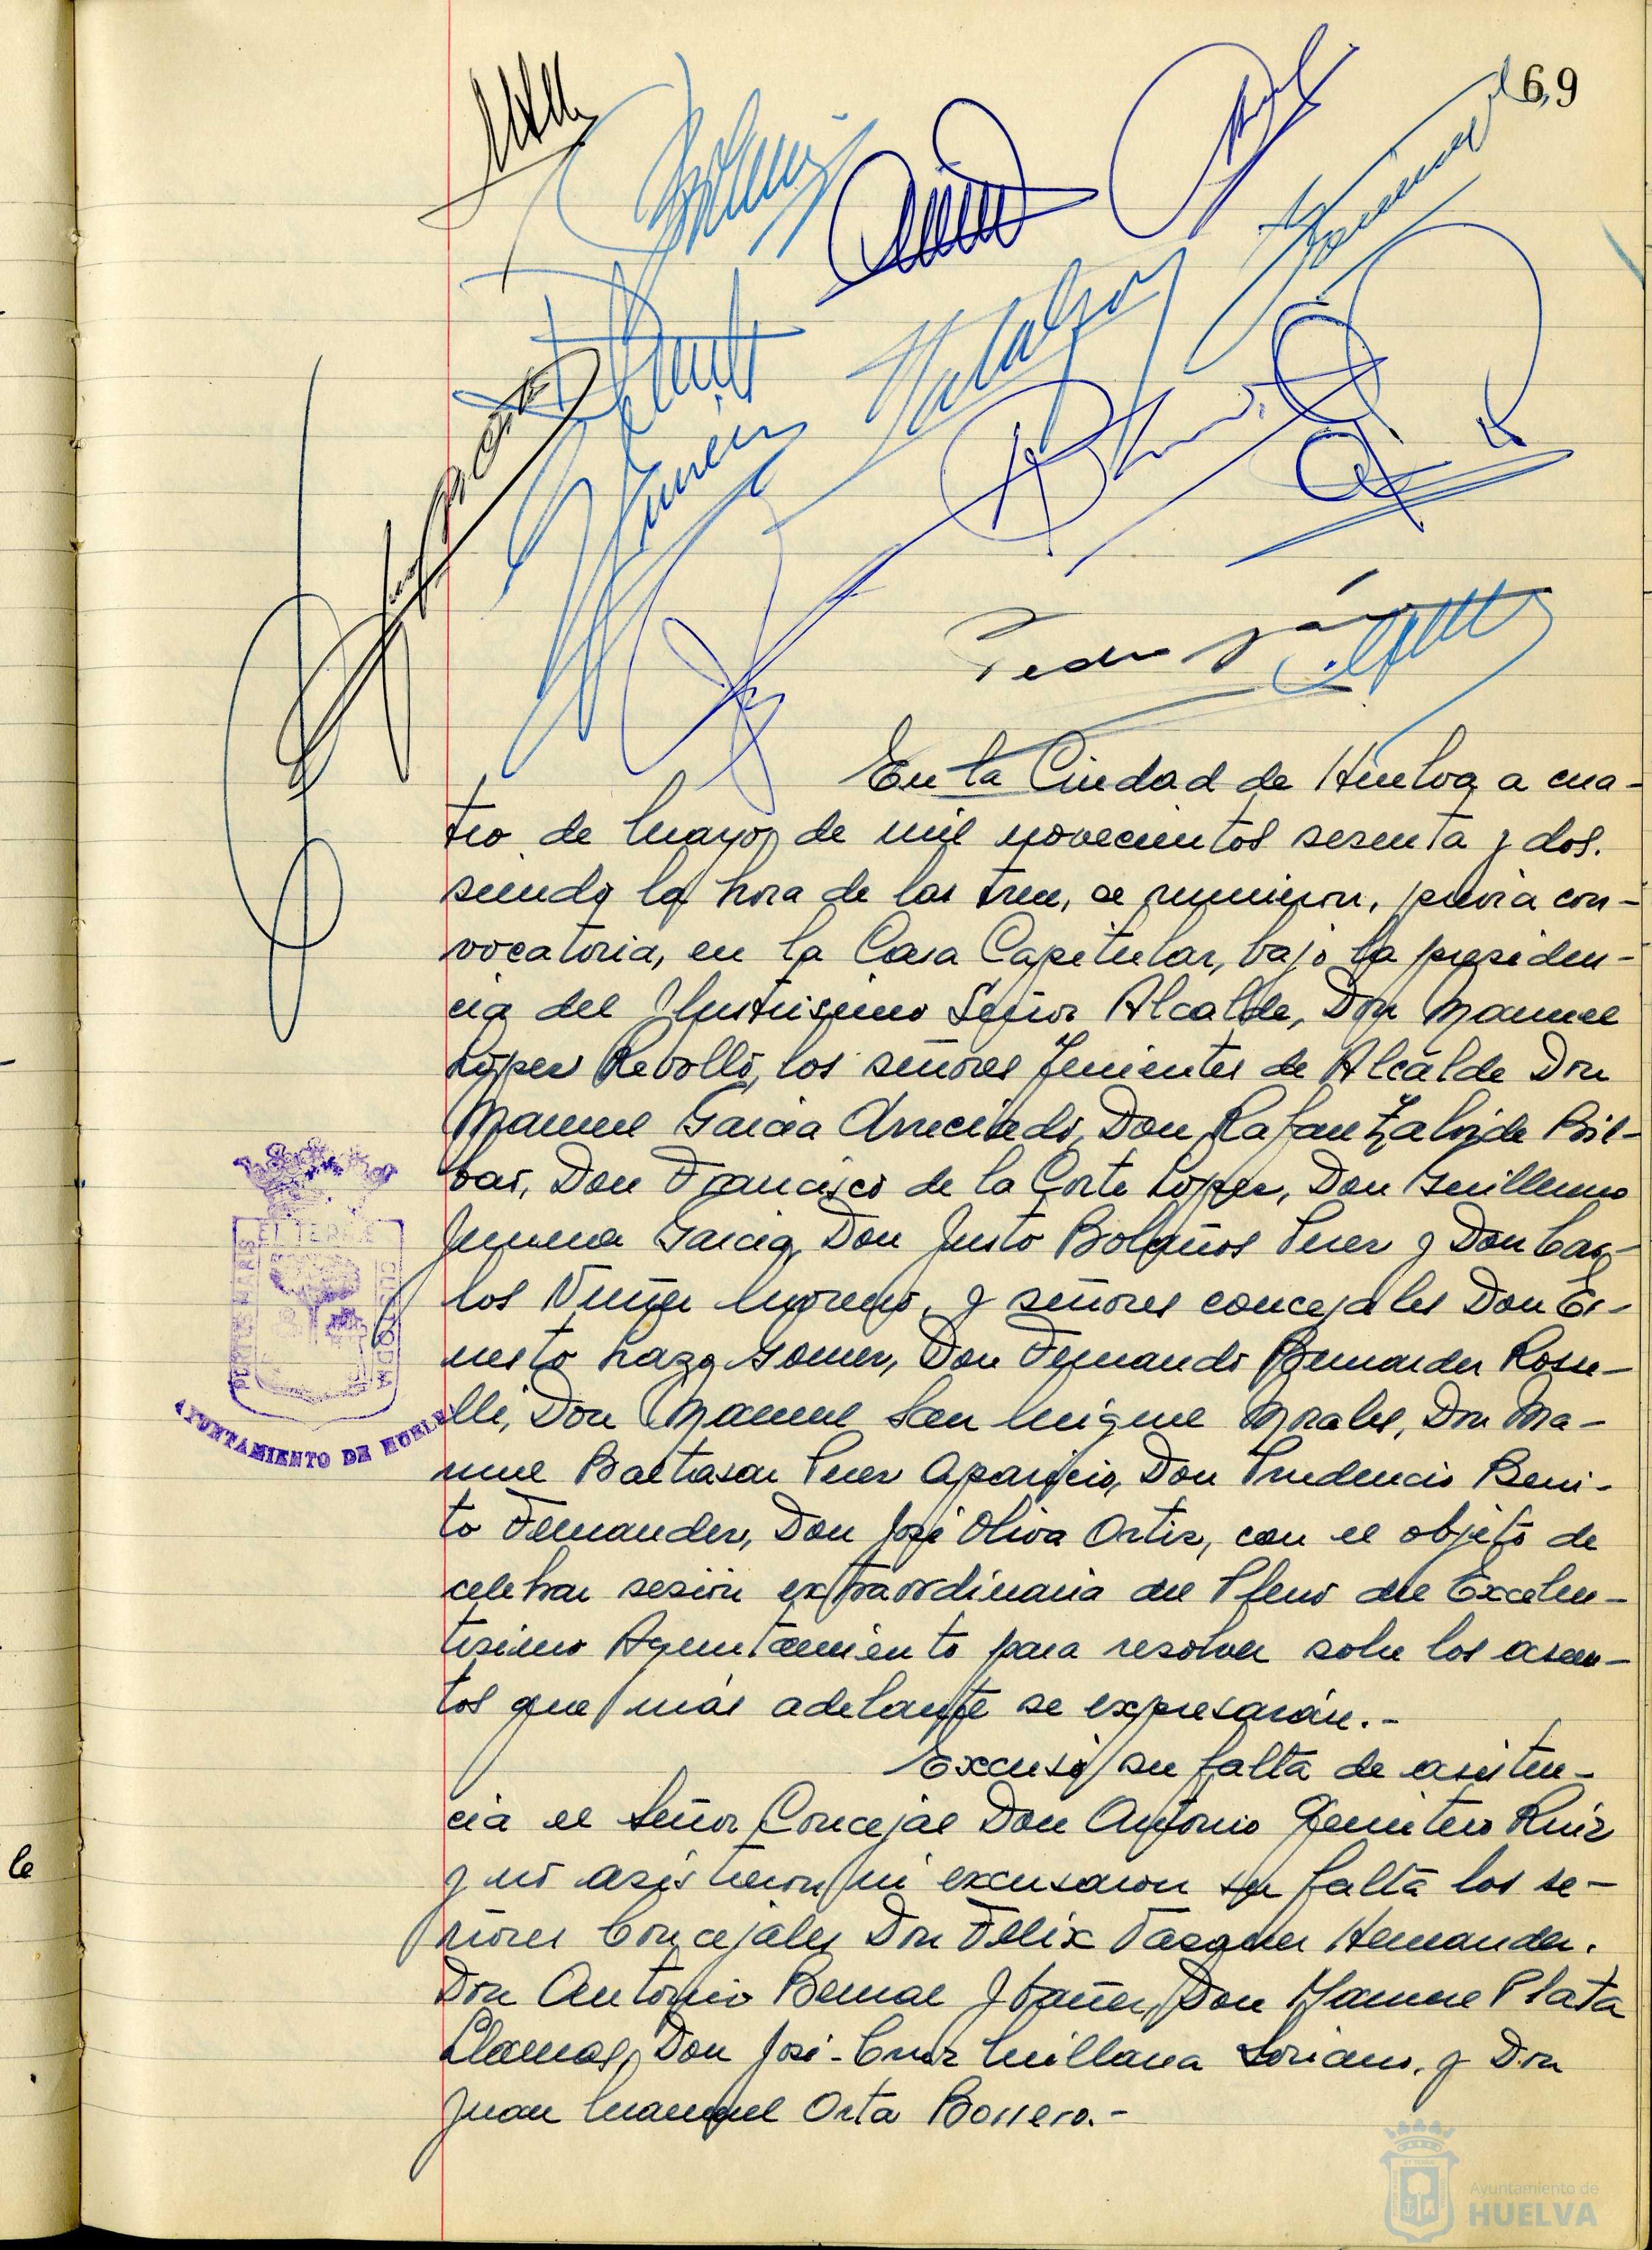 69
Pedro
En la Ciudad de Huelva a cua-
tro de Mayo de mil novecientos sesenta y dos.
siendo la hora de las trece, se reunieron, previa con-
vocatoria, en la Casa Capitular, bajo la presiden-
cia del Ilustrisimo Señor Alcalde, Don Manuel
López Rebollo, los señores Tenientes de Alcalde Don
Manuel Garcia Arreciado, Don Rafael Zalvide Bil-
bao, Don Francisco de la Corte López, Don Guillermo
Jimena Garcia, Don Justo Bolaños Perez y Don Car-
los Nuñez Moreno, y señores concejales Don Er-
nesto Lazo Gomez, Don Fernando Bernardez Rose-
lló, Don Manuel San Miguel Morales, Don Ma-
nuel Baltasar Perez Aparicio, Don Prudencio Beni-
to Fernandez, Don José Oliva Ortiz, con el objeto de
celebrar sesión extraordinaria del Pleno del Excelen-
tisimo Ayuntamiento para resolver sobre los asun-
tos que más adelante se expresarán.-
Excusó su falta de asisten-
cia el Señor Concejal Don Antonio Ruiz
y no asistieron ni excusaron su falta los se-
ñores Concejales Don Félix Vazquez Hernandez.
Don Antonio Bernal Ibañez, Don Manuel Plata
Llamas, Don José-Cruz Millana Soriano, y Don
Juan Manuel Orta Borrero.-
EL TERRAE
PORTUS MARIS
CUSTODIA
AYUNTAMIENTO DE HUELVA
le
Ayuntamiento de
HUELVA